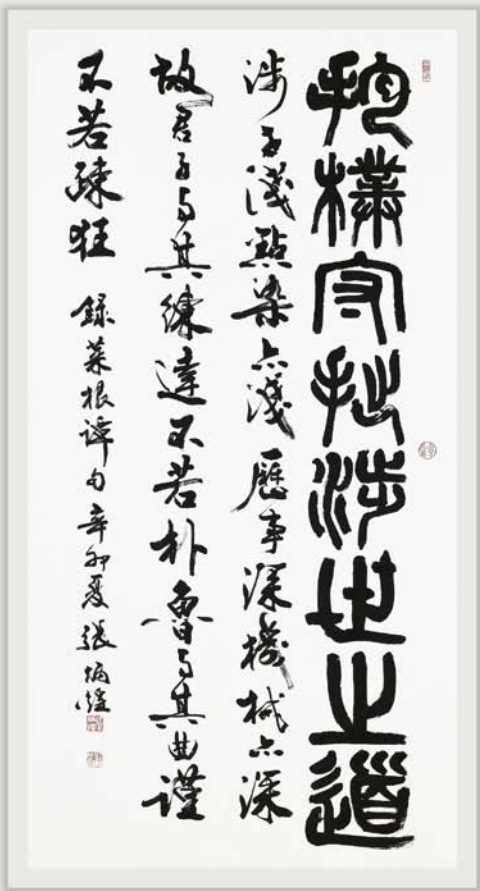 抱樸守拙涉世之道
涉世淺點染亦淺歷事深機械亦深
故君子与其練達不若朴魯与其曲謹
不若疎狂 錄菜根譚句辛卯夏張炳煌